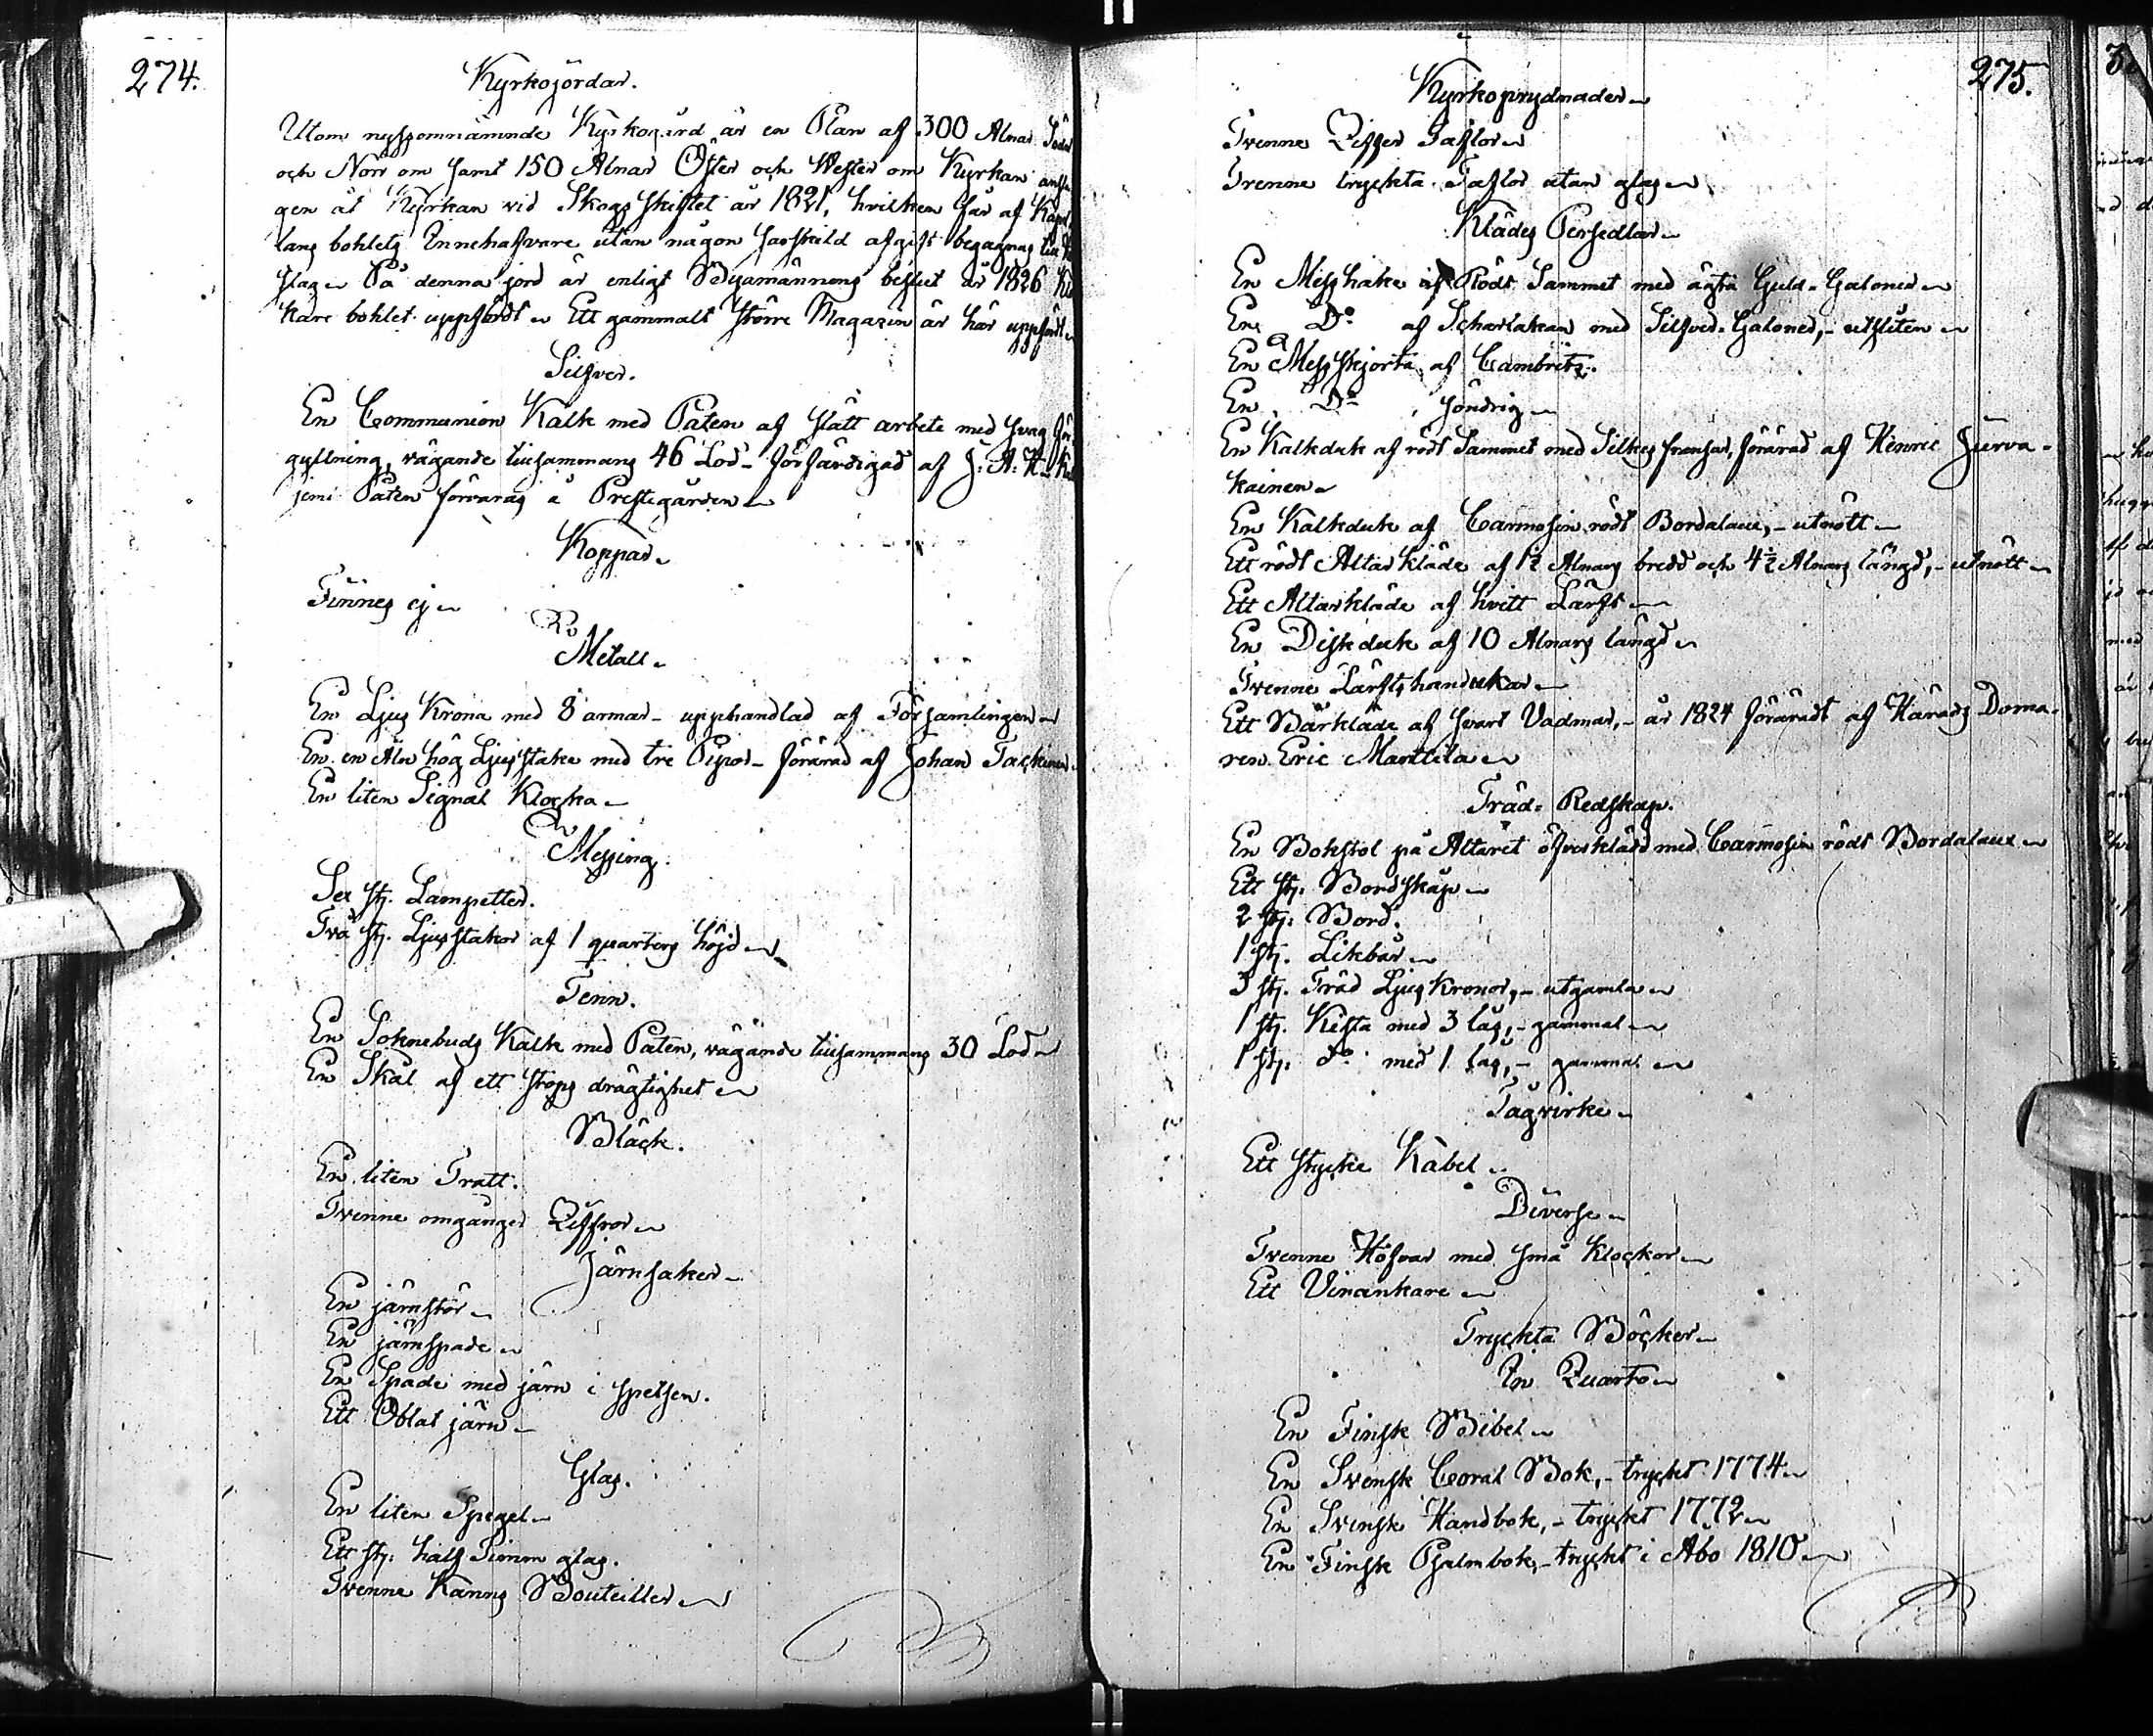 274.
Kyrkojordar.
Utom nyssomnämnde Kyrkogård är en Plan af 300 Alnar Söder
och Norr om samt 150 Alnar Öster och Wester om Kyrkan
gen åt Kyrkan vid Skogs skiftet år 1821, hvilken får af
lans bohlets Innehafvare utan någon särskild afgift begagnas till
slag. På denna jord är enligt Sockenmännens beslut år 1826
kare bohlet uppfördt. Ett gammalt större Magazin är här uppfördt
Silfver.
En Communion Kalk med Paten af slätt arbete med svag
gyllning, vägande tillsammans 46 Lod. Förfärdigad af J: A:
jemi Paten förvaras å Prestegården
Koppar.
Finnes ej.
Metall.
En Ljus Krona med 8 armar - upphandlad af Församlingen
En en Aln hög Ljusstake med tre Pipor - förärad af Johan Tackinen
En liten Signal Klocka.
Messing.
Sex st. Lampetter.
Två st. Ljusstakar af 1 quarters höjd
Tenn.
En Soknebuds Kalk med Paten, vägande tillsammans 30 Lod
En Skål af ett stops drägtighet
Bläck.
En liten Tratt.
Tvenne omgånger Ziffror
Järnsaker.
En järnstör
En järnspade
En Spade med järn i spetsen.
Ett Oblat järn
Glas.
En liten Spegel
Ett st: half Timm glas.
Tvenne Kanns Bouteiller
275.
Kyrkoprydnader
Tvenne Ziffer Taflor
Trenne tryckta Taflor utan glas
Klädes Persedlar
En Messhake af Rödt Sammet med äckta Guld-Galoner
En Do af Scharlakan med Silfver-Galoner, - utsliten
En Messskjorta af Cambrits.
En Do, söndrig
En Kalkduk af rödt Sammet med Silkes fransar, förärad af Henric Jurva-
kainen
En Kalkduk af Carmosin rödt Bordalaux, - utnött
Ett rödt Altar kläde af 1½ Alnars bredd och 4½ Alnars längd, - utnött
Ett Altarkläde af hvitt Lärft
En Diskduk af 10 Alnars längd
Tvenne Lärfts handukar
Ett Bårkläde af svart Vadmar, - år 1824 föräradt af Härads Doma-
ren Eric Marttila
Träd- Redskap.
En Bokstol på Altaret öfverklädd med Carmosin rödt Bordalaux
Ett st: Bordskåp
2 st: Bord.
1 st. Likbår
3 st. Träd Ljus kronor, - utgamla
1 st. Kista med 3 lås, - gammal
1 st: do med 1 lås, - gammal
Tågvirke
Ett stycke Kabel
Diverse
Tvenne Höfvar med små Klockor
Ett Vinankare
Tryckta Böcker
In Quarto
En Finsk Bibel
En Svensk Coral Bok, - tryckt 1774
En Svensk Handbok, - tryckt 1772
En Finsk Psalmbok, - tryckt i Åbo 1810